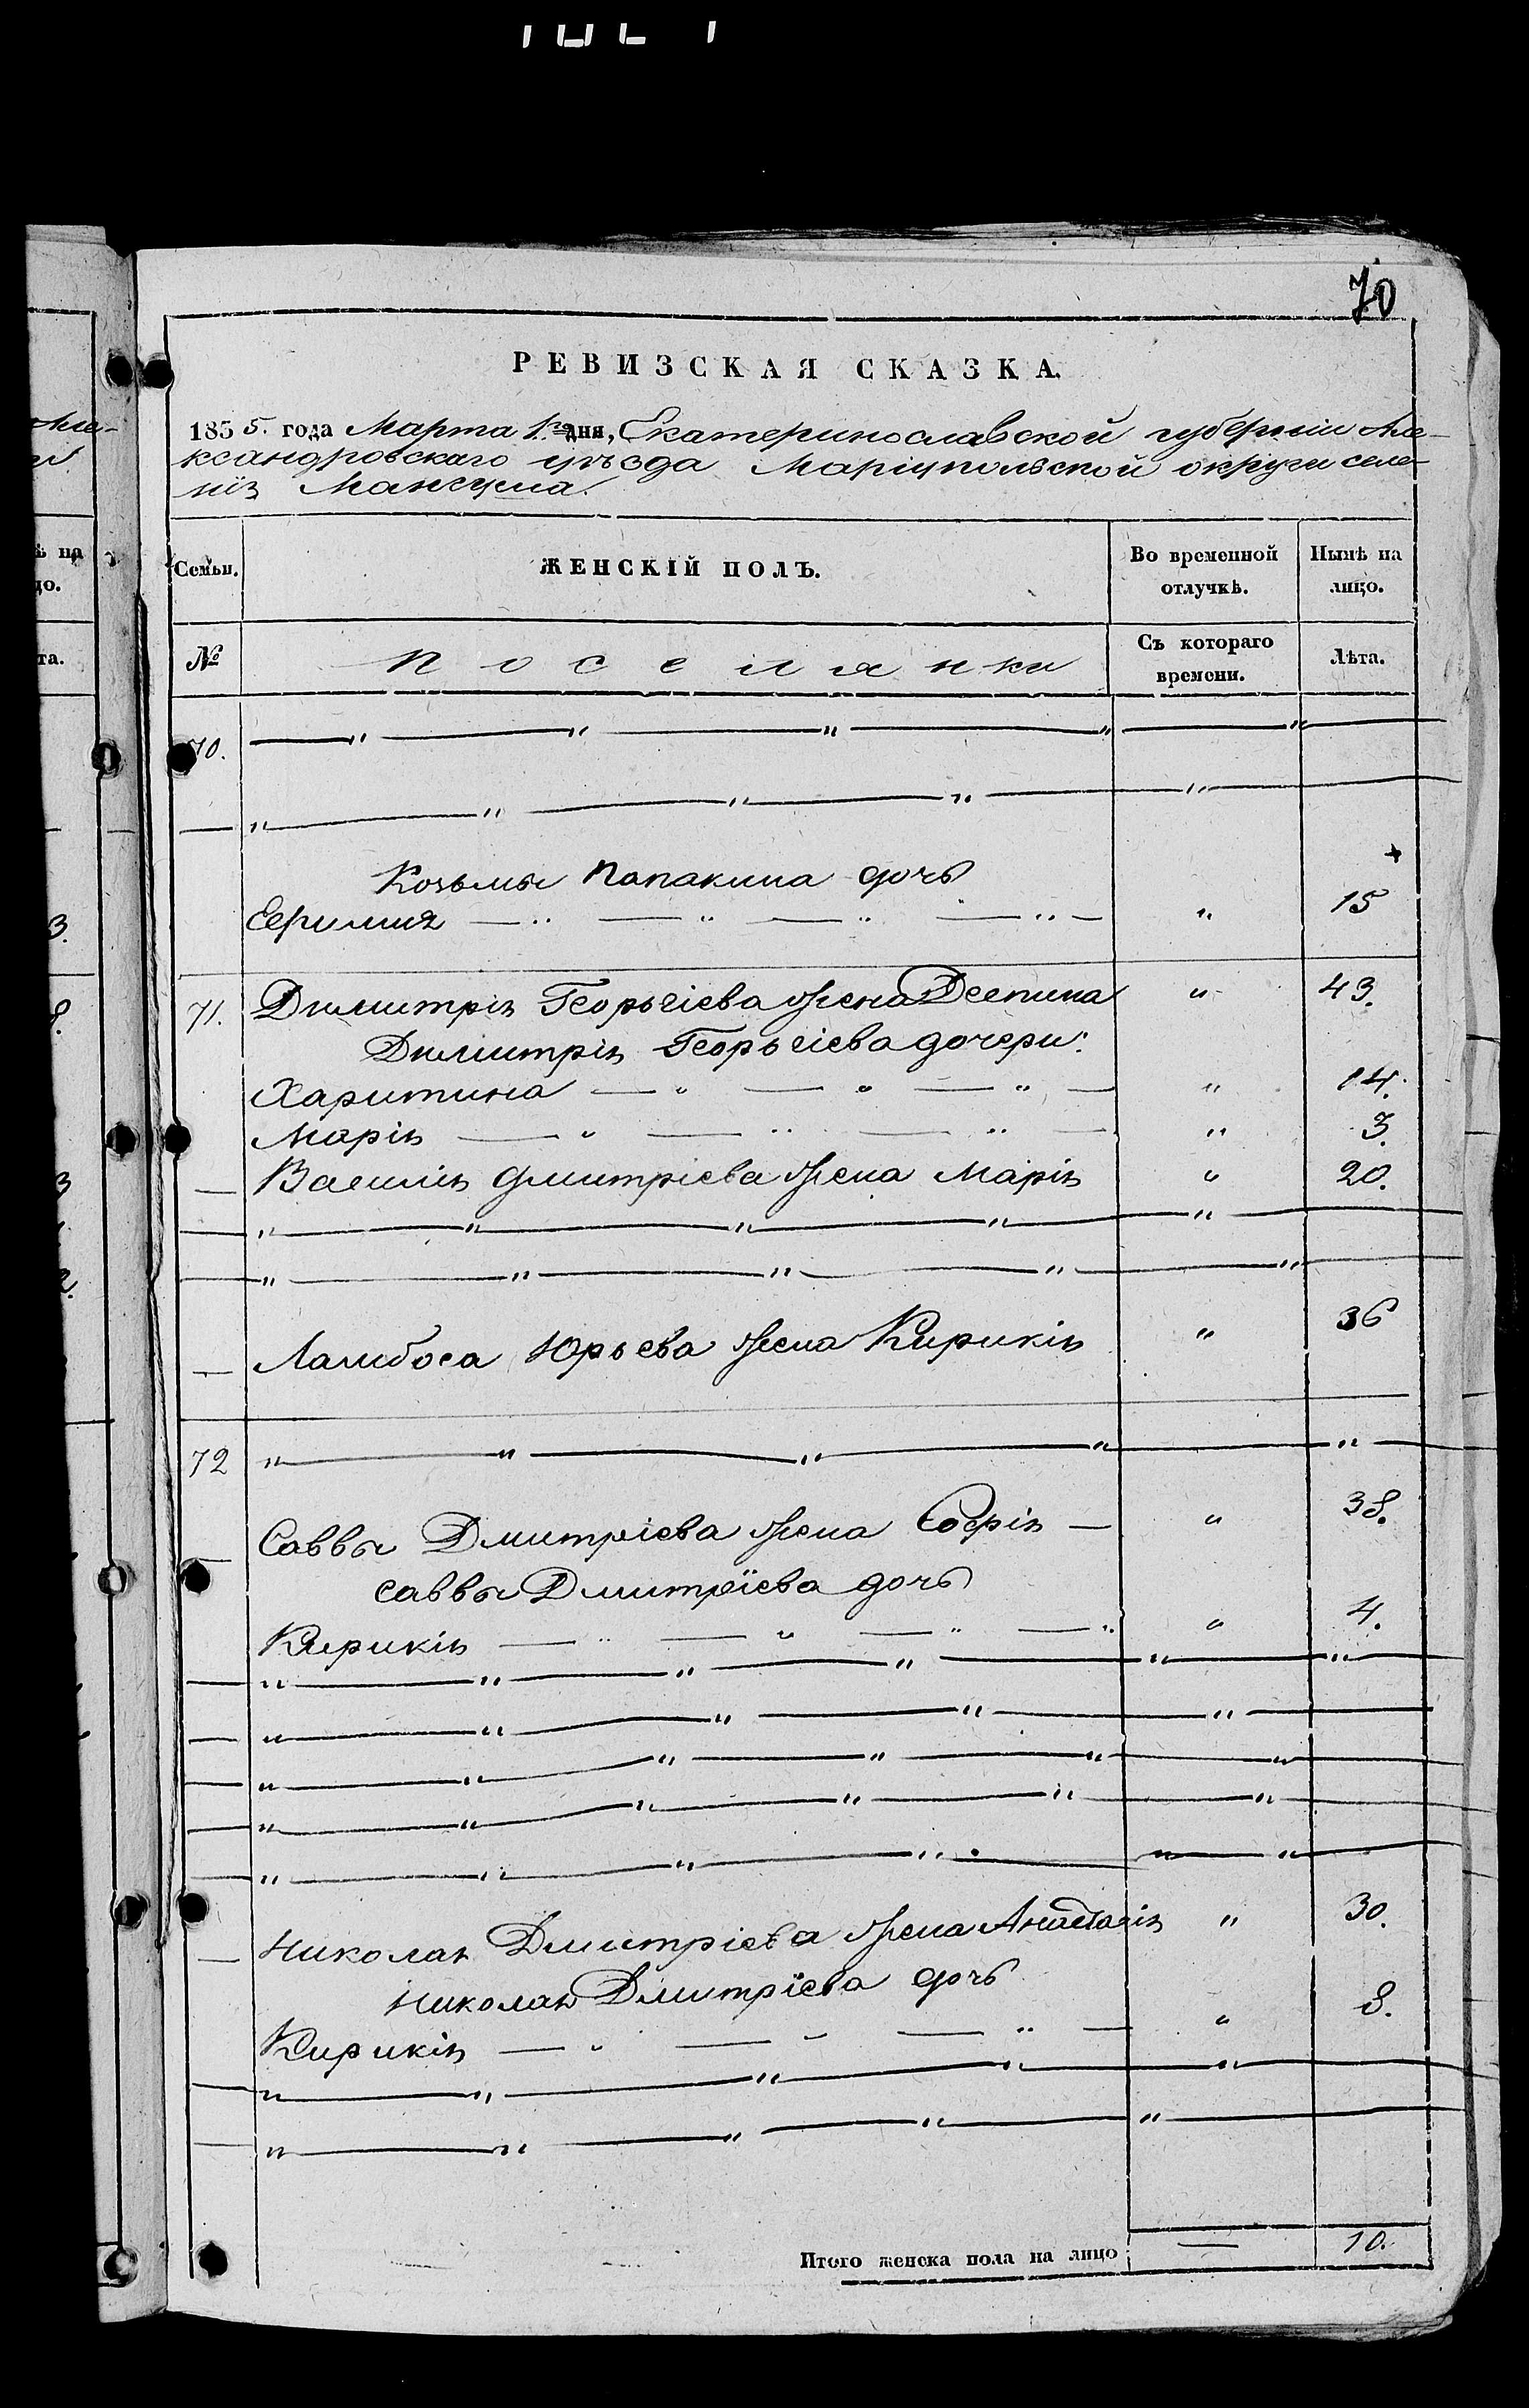 70
РЕВИЗСКАЯ СКАЗКА.
1855. года Марта 1го дня, Екатеринославской губерніи Але-
ксандровскаго уѣзда Маріупольской округи селе-
нія Мангуша.
Семьи. ЖЕНСКІЙ ПОЛЪ. Во временной отлучкѣ. Нынѣ на лицо.
№ Поселянки Съ котораго времени. Лѣта.
70. — " — " — " — " — "
— " — " — " — " — "
Козьмы Папакица дочь
Ефимия — " — " — " — " — " 15
71. Димитрія Георгіева жена Деспина " 43.
Димитрія Георгіева дочери:
Харитина — " — " — " — " 14.
Марія — " — " — " — " 3.
— Василія Дмитріева жена Марія " 20.
— " — " — " — " — "
— " — " — " — " — "
— Ламбоса Юрьева жена Кирикія " 36
72 " — " — " — " — "
— Саввы Дмитріева жена Софія — " 38.
Саввы Дмитріева дочь
Кирикія — " — " — " — " " 4.
— " — " — " — " — " — "
— " — " — " — " — "
— " — " — " — " — " — "
— " — " — " — " — " — "
— " — " — " — " — " — "
— Николая Дмитріева жена Анастасія " 30.
Николая Дмитріева дочь
Кирикія — " — " — " — " 8.
— " — " — " — " — "
— " — " — " — " — "
Итого женска пола на лицо — 10.